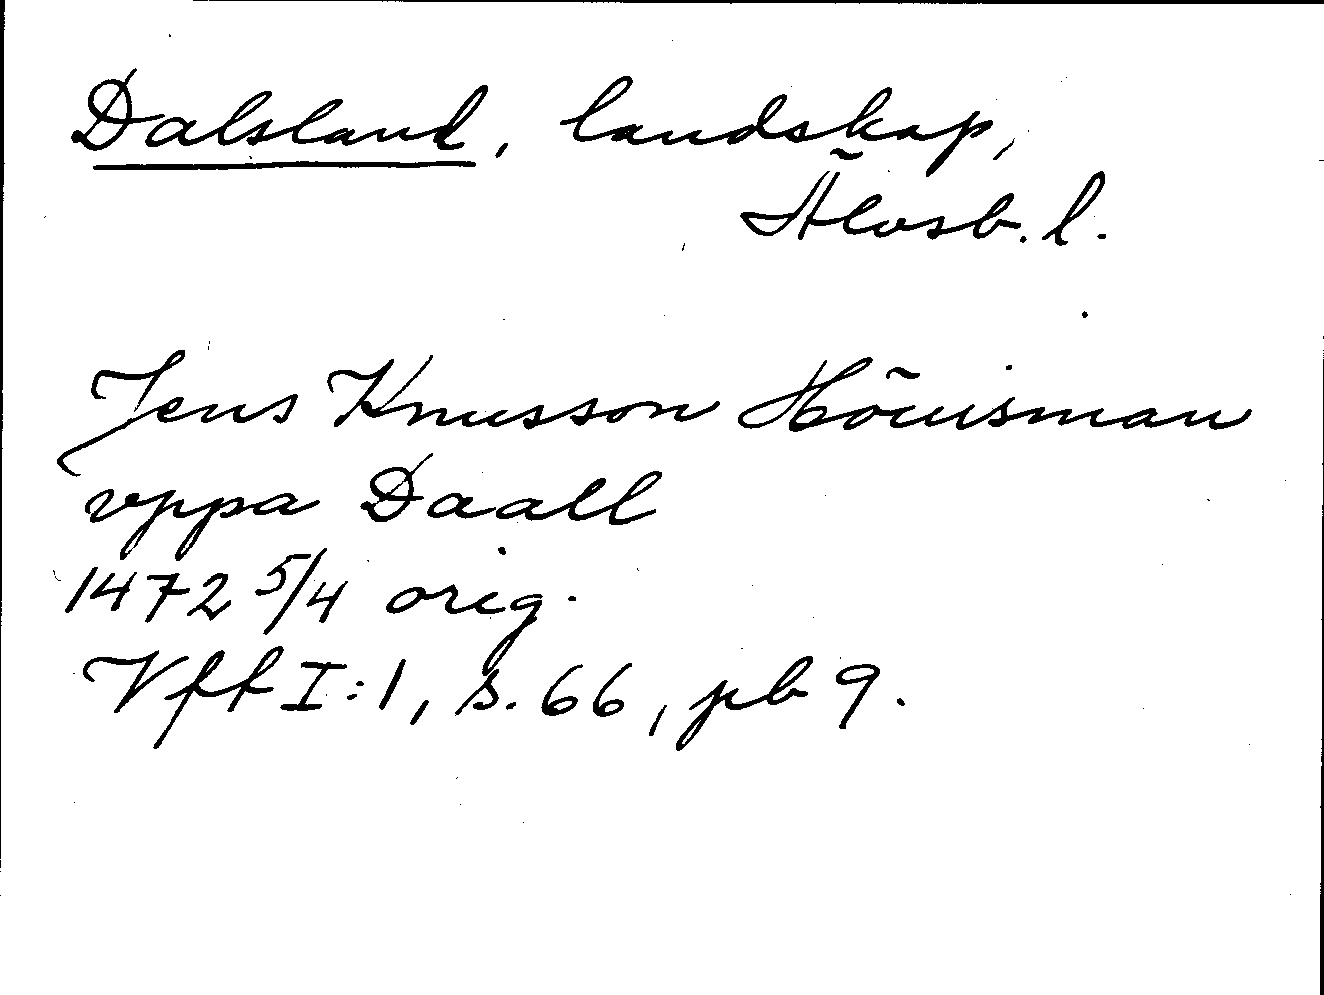 Dalsland, landskap,
Älvsb. l.
Jens Knusson Höuisman
vppa Daall
1472 5/4 orig.
Vff I:1, s. 66, pb 9.